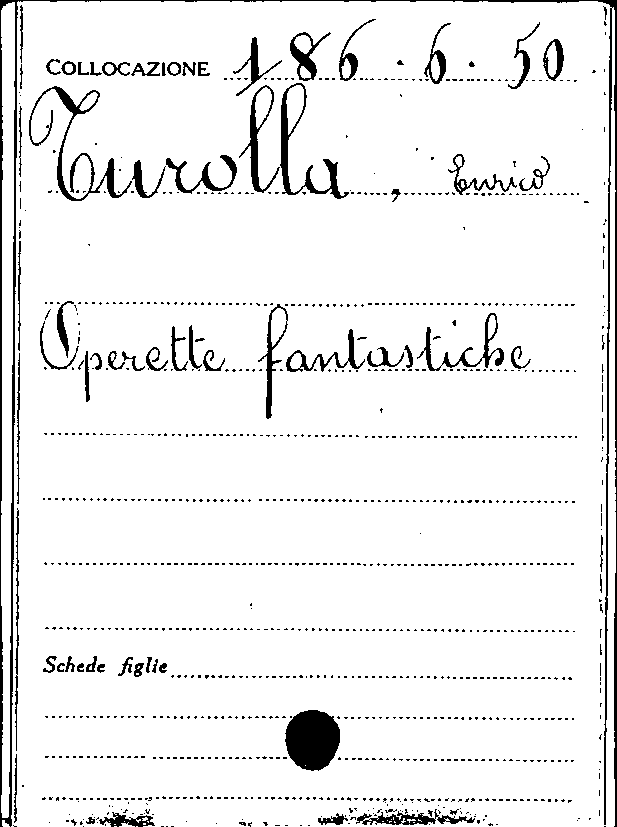 COLLOCAZIONE 186.6.50
Turolla, Enrico
Operette fantastiche
Schede figlie